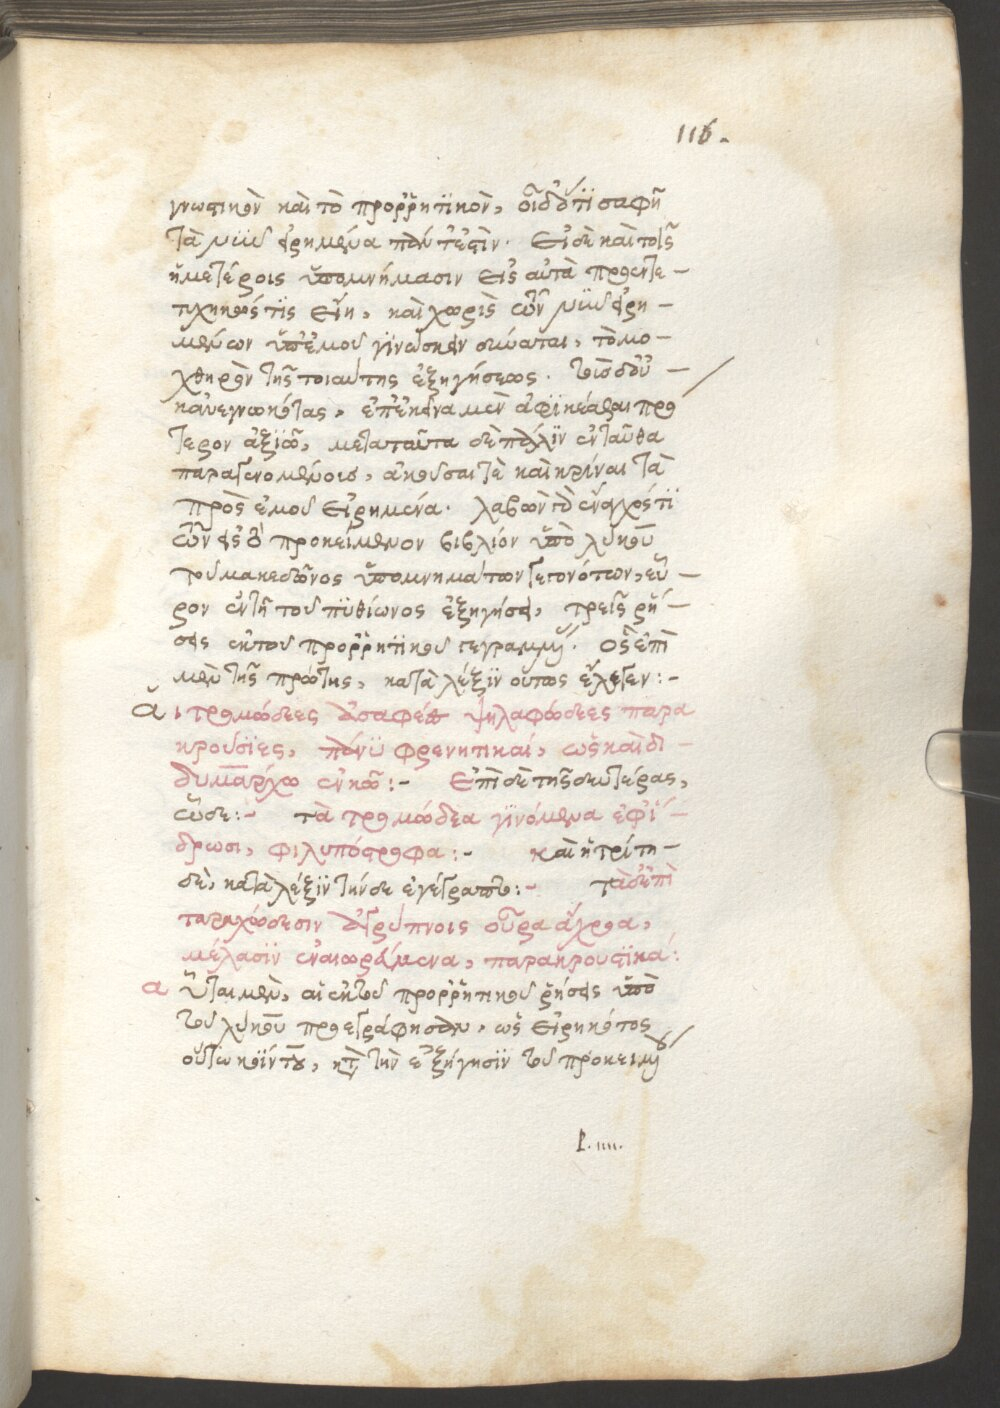 116.
γνωστικὸν καὶ τὸ προρρητικὸν, οἶδ' ὅτι σαφῆ
τὰ νῦν εἰρημένα πάντ' ἐστίν. Εἰ δὲ καὶ τοῖς
ἡμετέροις ὑπομνήμασιν εἰς αὐτὰ προεντε-
τυχηκώς τις εἴη, καὶ χωρὶς τῶν νῦν εἰρη-
μένων ὑπ' ἐμοῦ γινώσκειν δύναται, τὸ μο-
χθηρὸν τῆς τοιαύτης ἐξηγήσεως. τοὺς δ' οὐ-
κ ἀνεγνωκότας, ἐπ' ἐκεῖνα μὲν ἀφικέσθαι πρό
τερον ἀξιῶ, μετὰ ταῦτα δὲ πάλιν ἐνταῦθα
παραγενομένους, ἀκοῦσαί τε καὶ κρίναι τὰ
πρὸς ἐμοῦ εἰρημένα. λαβὼν τὸ ἔναγχός τι
τῶν εἰς ὃ προκείμενον βιβλίον ὑπὸ λύκου
τοῦ μακεδόνος ὑπομνημάτων γεγονότων, εὗ-
ρον ἐν τῇ τοῦ πυθίωνος ἐξηγήσει, τρεῖς ῥή-
σεις ἐκ τοῦ προρρητικοῦ γεγραμμ. ὃς ἐπὶ
μὲν τῆς πρώτης, κατὰ λέξιν οὕτως ἔλεγεν:-
αἱ τρομώδεες ἀσαφέες ψηλαφώδεες παρα
κρούσιες, πάνυ φρενητικαί, ὡς καὶ δι-
δυμάρχῳ ἐν κῷ:- Ἐπὶ δὲ τῆς δευτέρας,
ὧδε:- τὰ τρομώδεα γινόμενα ἐφι-
δρωσι, φιλυπόστροφα:- καὶ ἡ τρίτη-
δὲ, κατὰ λέξιν τήνδε ἐγέγραπτο:- τὰ δ' ἐπὶ
ταραχώδεσιν ἀγρύπνοις οὖρα ἄχροα,
μέλασιν ἐναιωρεύμενα, παρακρουστικά:
αὗται μὲν, αἱ ἐκ τοῦ προρρητικοῦ ῥήσεις ὑπὸ
τοῦ λύκου προεγράφησαν, ὡς εἰρηκότος
οὕτω κοΐντου, κτ τὴν ἐξήγησιν τοῦ προκειμ